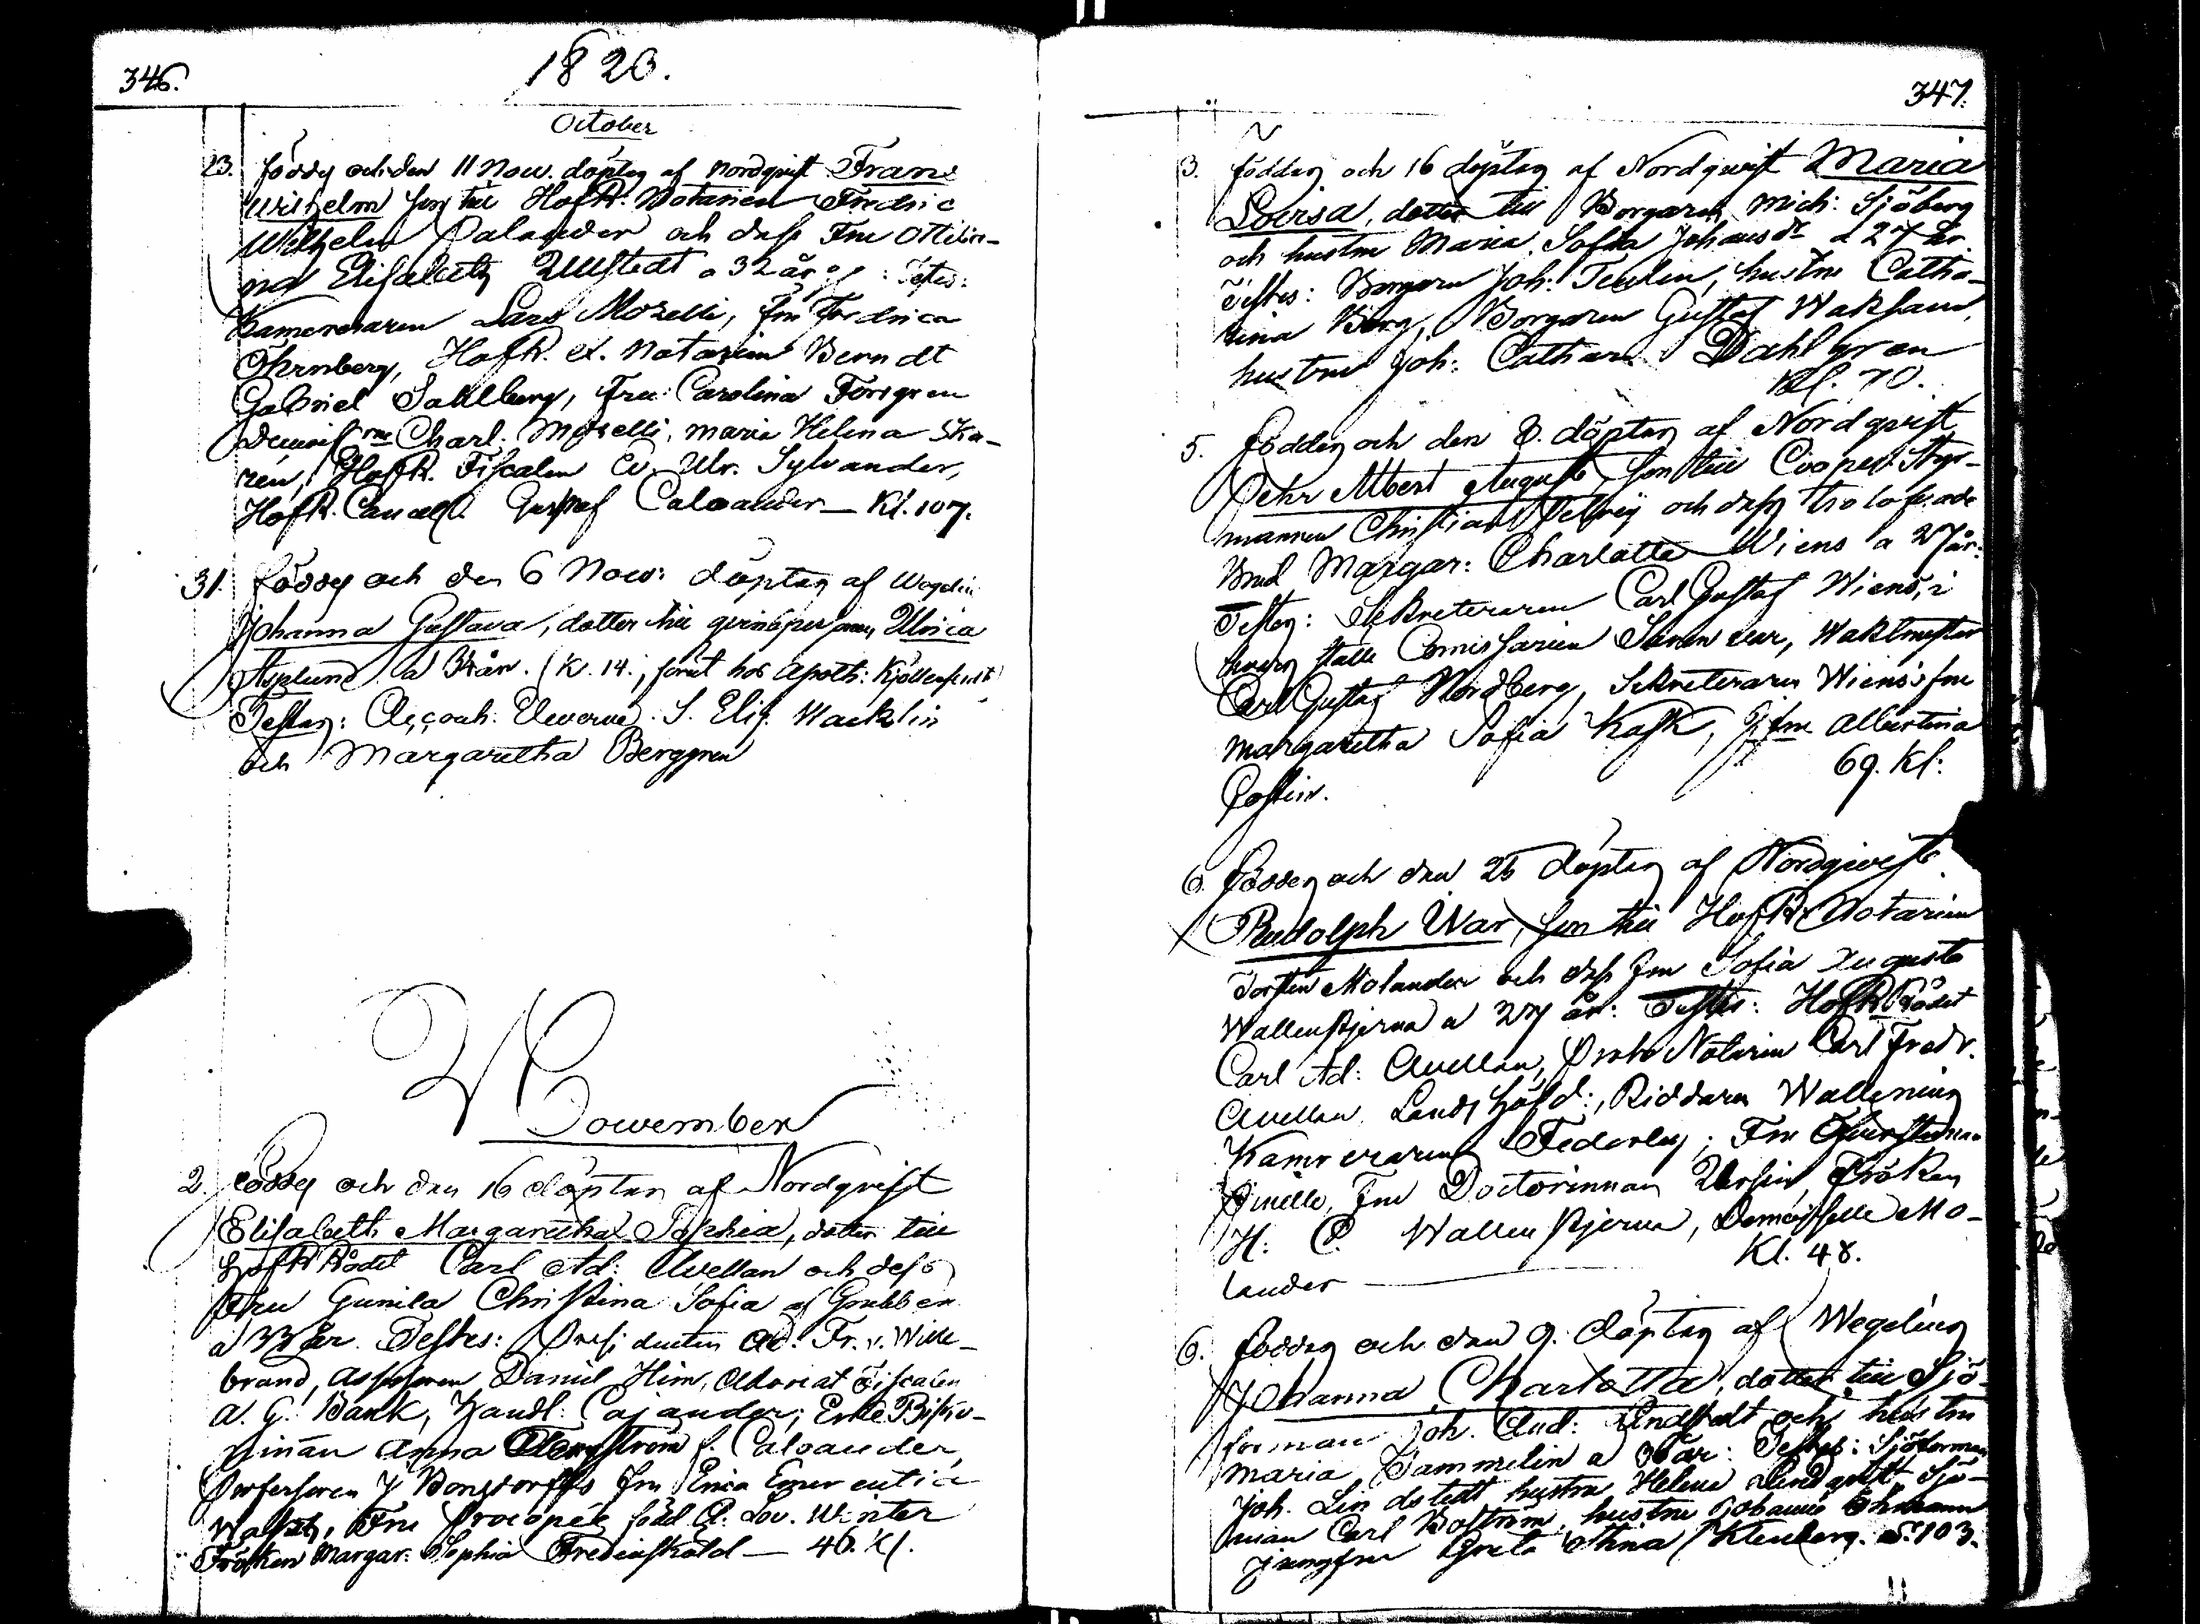 346.
1820.
October
23. född och den 11 Nov. döpt af Nordqvist Frans
Wilhelm son till HofR. Notarien Fredric
Wilhelm Palander och dess Fru Ottilia-
na Elisabeth Ullstedt a 32 år Testes:
Kamereraren Lars Moselli, fru Fredrica
Öhrnberg, HofR. ex. Notarien Berndt
Gabriel Sahlberg, Fru Carolina Forsgren
Charl. Moselli, Maria Helena Ska-
rén, HofR. Fiscalen Ulr. Sylvander,
HofR. Cancel. Gustaf Caloander — Kl. 107.
31. född och den 6 Nov: döpt af Wegelius
Johanna Gustava, dotter till qvinspersonen Ulrica
Asplund a 34 år. (K. 14., hos Apoth:
Testes: S. Elis. Wacklin
och Margaretha Berggren
November
2. född och den 16 döpt af Nordqvist
Elisabeth Margaretha Sophia, dotter till
HofR Rådet Carl Ad: Avellan och dess
Fru Gunila Christina Sofia af Grubben
a 33 år. Testes: Presidenten Fr. v. Wille-
brand, Assessoren Daniel Hirn, Advocat Fiscalen
A. G. Bank, Handl. Cajander; Enke Bisko-
pinnan Anna f. Caloander,
Professoren J Bonsdorffs fru Erica Emerentia
Fru Procopé född Lov. Winter
Fröken Margar: Sophia Fredensköld — 46. Kl.
347.
3. född och 16 döpt af Nordqvist Maria
Lovisa, dotter till Borgaren Mich: Sjöberg
och hustru Maria Sofia Johansdr a 27 år.
Testes: Borgaren Joh: hustru Catha-
rina Berg, Borgaren Gustaf
hustru Joh: Cathar: Dahlgren
Kl. 70.
5. född och den 8. döpt af Nordqvist
Pehr Albert August, son till Cooper. Styr-
mannen Christian och dess trolofvade
Brud Margar: Charlotta Wiens a 27 år:
Testes: Sekreteraren Carl Gustaf Wiens, i
hvars ställe Comissarien Waktmästar
Carl Gustaf Nordberg, Sekreteraren Wiens's fru
Margaretha Sofia Kask, Jgfru Albertina
69. Kl:
Postin.
6. född och den 26 döpt af Nordqvist
Rudolph Iwar, son till HofR Notarien
Torsten Molander och dess fru Sofia Augusta
Wallenstjerna a 27 år: Testes: HofR Rådet
Carl Ad: Avellan, Proto Notarien Carl Fredr.
Avellan, Landshöfd:, Riddaren Walleen
Kamreraren Federley; Fru Öfverstinnan
Fru Doctorinnan Ursin, Fröken
H: C. Wallenstjerna, Demoiselle Mo-
Kl. 48.
lander —
6. född och den 9. döpt af Wegelius
Johanna Charlotta, dotter till Sjö-
forman Joh. And: Lindstedt och hustru
Maria Tammelin a 36 år: Testes: Sjöforman
Joh. Lindstedt hustru Helena Lindqvist Sjö-
man Carl Boström, hustru Johanna Öhrman
Jungfru Greta Stina Stenberg. S. 103.